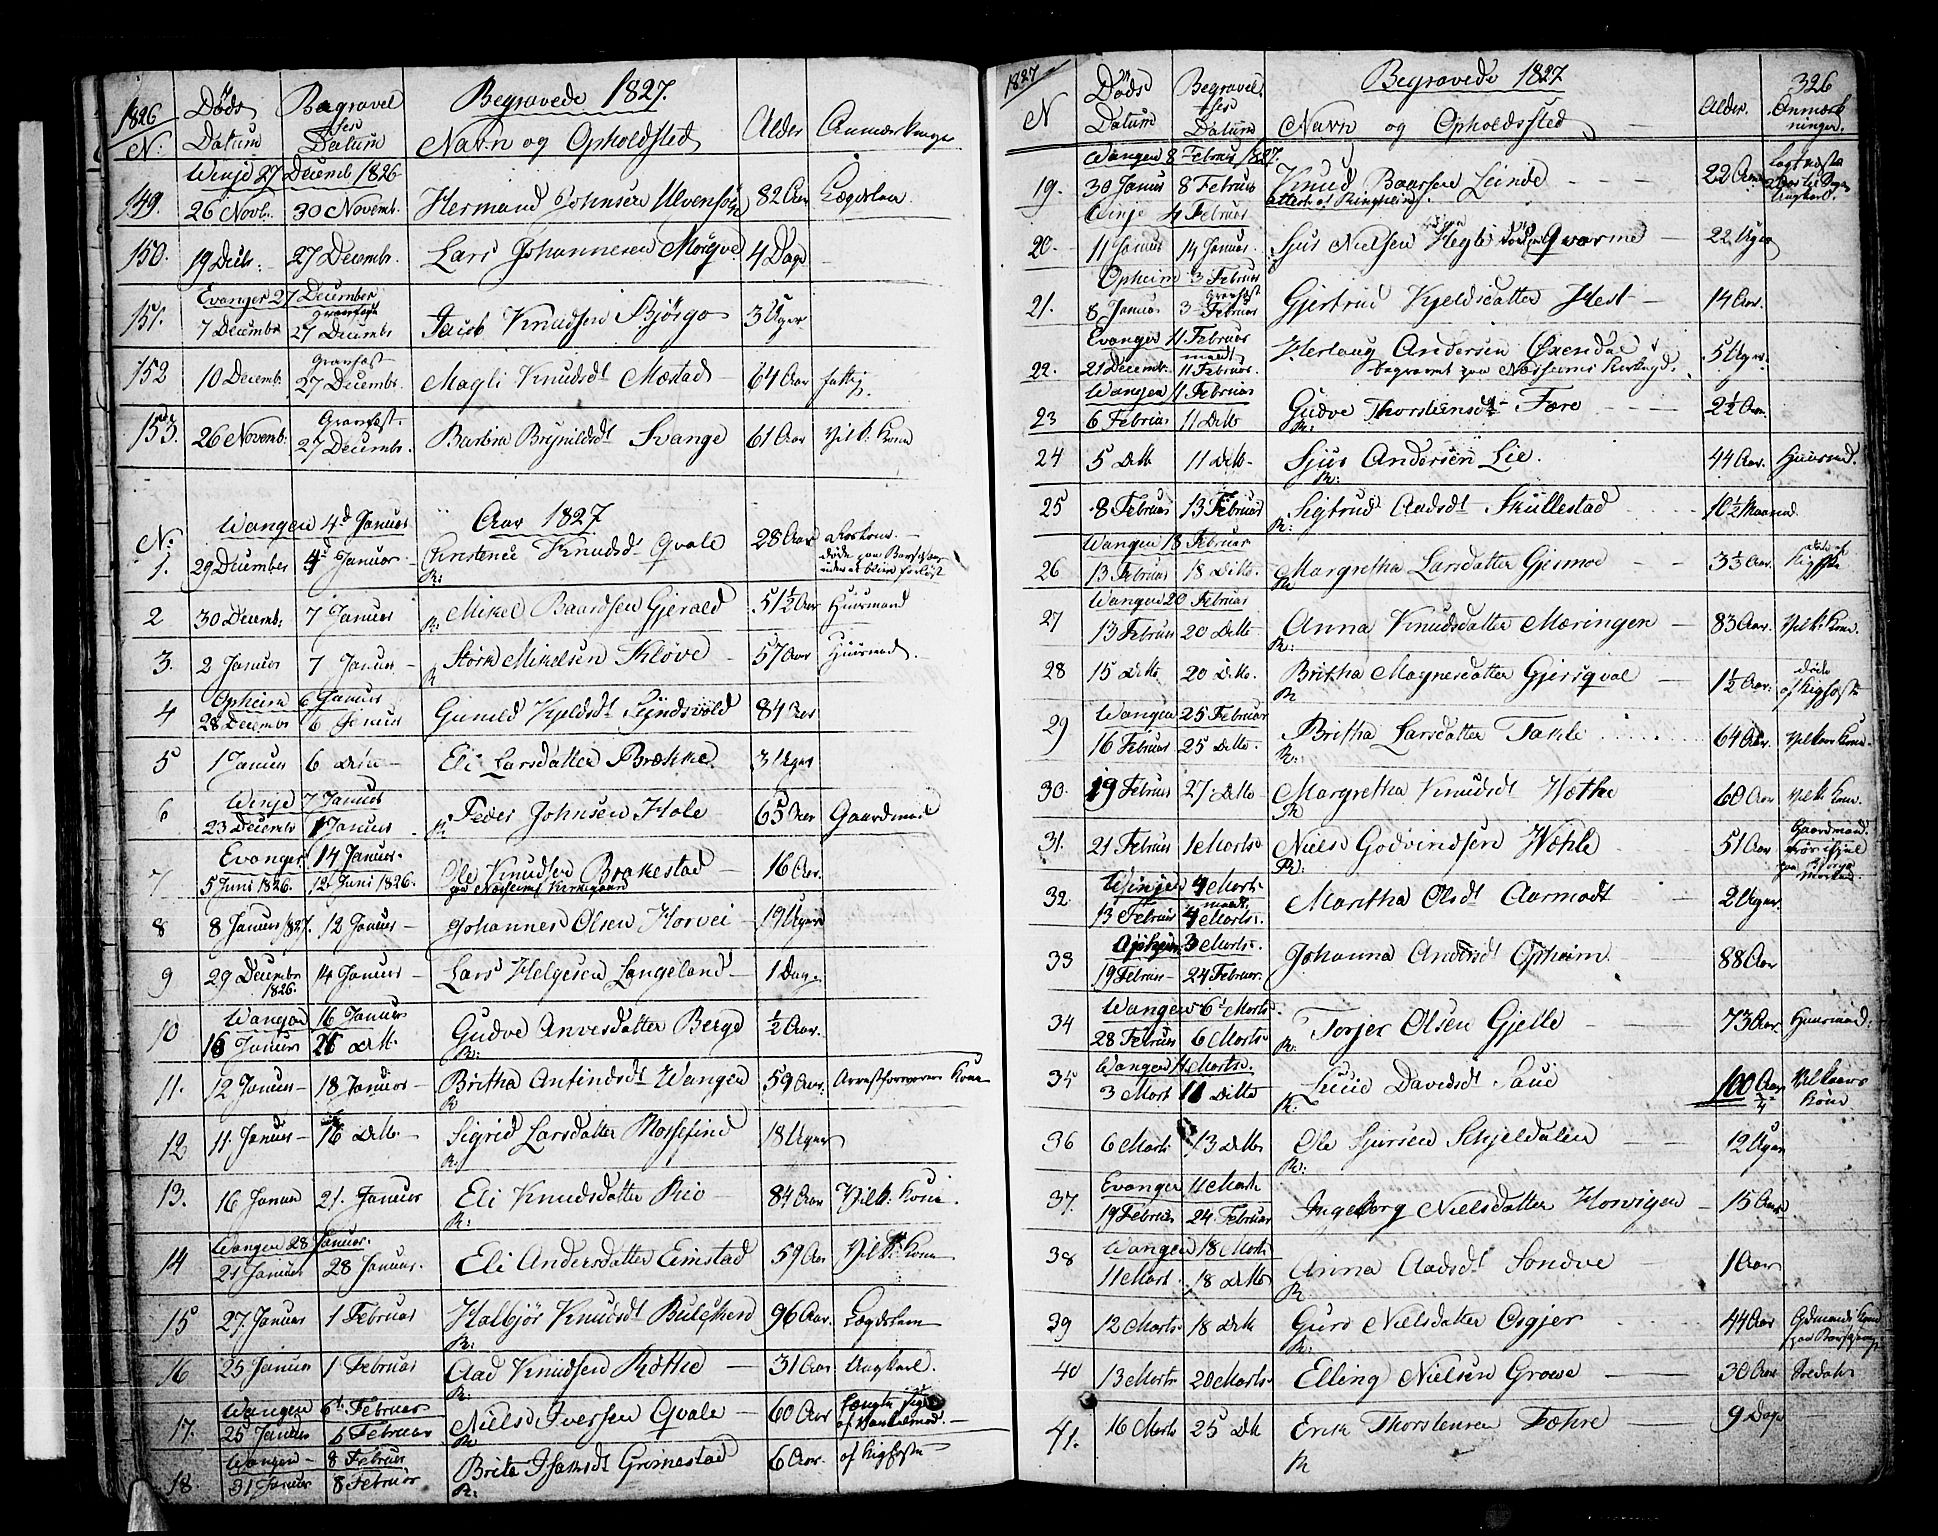 1826
Døds Begravel Begravede 1827.
N: Datum ses Datum Navn og Opholdsted Alder Anmærkninger
Winje 27 Decemb 1826
149. 26 Novb. 30 Novemb. Hermand Johnsen 82 Aar Lægdslem
150. 19 Decb: 27 Decembr. Lars Johannesen Mørqve 4 Dage
Evanger 27 December
Gravfæst
151. 7 Decembr 27 Decembr Jacob Knudsen Bjørgo 3 Uger
Gravfæst
152 10 Decemb. 27 Decembr. Magli Knudsdt Mæstad 64 Aar fattig
Gravfæst.
153. 26 Novemb. 27 Decembr. Barbra Brynildsdt Evange 61 Aar Vilk. Kone
Wangen 4d Januar Aar 1827
N:
1. 29 December 4d Januar Christence Knudsd Qvale 28 Aar
R:
2 30 Decemb: 7 Januar Mikel Baardsen Gjerald 51½ Aar Huusmand
R:
3. 2 Januar 7 Januar Størk Mikelsen Kløve 57 Aar Huusmand.
R
Opheim 6 Januar
4 28 Decembr 6 Januar Gunild Kjeldsdt 84 Aar
5 1 Januar 6 Dito Eli Larsdatter Brække. 3 Uger
Winje 7 Januar
6 23 Decembr 7 Januar Peder Johnsen Hole 65 Aar Gaardmand
R
Evanger 14 Januar.
7 5 Juni 1826. 12 Juni 1826. Ole Knudsen Brakestad 16 Aar.
paa Næsheims Kirkegaard
8 8 Januar 1827. 12 Januar Johannes Olsen Horvei 19 Uger
9 29 Decembr 1826. 14 Januar Lars Helgesen Langeland 1 Dage
Wangen 16 Januar
10 16 Januar Ditto. Gudve Anvesdatter Berge ½ Aar.
R:
11. 12 Januar 18 Januar Britha Antindsdt Wangen 59 Aar. Arrestforvarers Kone
R
12 11. Januar 16 Ditto. Sigrid Larsdatter 18 Uger
R:
13. 16 Januar 21. Januar Eli Knudsdatter Rio 84 Aar Vilk. Kone.
R:
Wangen 28 Januar.
14 21 Januar 28 Januar. Eli Andersdatter Eimstad 59 Aar Vilk. Kone
15 27. Januar 1 Februar Halbjør Knudsdt 96 Aar. Lægdslem
R:
16 25 Januar 1 Februar Aad Knudsen Røthe 31 Aar Ungkarl.
R:
Wangen 6t Februar
17. 25 Januar 6 Februar Niels Iversen Qvale 60 Aar
R:
Wangen 8 Februar
18. 31 Januar 8 Februar Brita Isaksdt Grimestad 6 Aar. af Kighoste
R:
1827 Døds Begravel Begravede 1827 326
N Datum ses Datum Navn og Opholdssted Alder. Anmærkninger.
Wangen 8 Februar 1827.
19. 30 Januar 8 Februar Knud Baarsen Leinde 22 Aar
Winje 4 Februar
20. 11 Januar 14 Januar. Sjur Nielsen Hegle Qvarme 22 Uger
Opheim 3 Februar
Gravfæst
21. 8 Januar 3 Februar Gjertrud Kjeldsdatter Hest 14 Aar.
Evanger 11 Februar
22. 21 Decemb. 11 Februar. Herlaug Andersen Øxendal 5 Uger.
begravet paa Næsheims Kirkegd.
Wangen 11 Februar
23 6 Februar 11 Ditto Gudve Thorstensdt Fære 2½ Aar.
R:
24 5 Ditto 11 Ditto Sjur Andersen Lie. 44 Aar. Huusmd.
R:
25 8 Februar 13 Februar Sigtrud Aadsdt Skullestad 10½ Maaned.
R:
Wangen 18 Februar
26 13 Februar 18 Ditto. Margretha Larsdatter Gjermoe 3½ Aar.
R
Wangen 20 Februar
27 13 Februar 20 Ditto Anna Knudsdatter Mæringen 83 Aar. Vilk: Kone.
R:
28 15 Ditto 20 Ditto. Britha Magnesdatter Gjersqval 1½ Aar. døde af Kighoste
R
Wangen 25 Februar
29 16 Februar 25 Ditto. Britha Larsdatter Takle 64 Aar. Vilkaars Kone
R:
30. 19 Februar 27 Ditto Margretha Knudsdt Wæthe 60 Aar Vilk. Kone.
R
31. 21 Februar 1 Marts Niels Godvindsen Wæhle 51 Aar Gaardmand.
R:
Winje 4 Marts
32 13 Februar 4 Marts. Maritha Olsdt Aarmodt 2 Uger.
Opheim 3 Marts.
33 19 Februar 24 Februar. Johanna Andersdt Opheim 88 Aar
Wangen 6t Marts.
34 28 Februar 6 Marts. Torjer Olsen Gjelle 73 Aar. Huusmand.
R:
Wangen 11 Marts.
35 3 Mart 11 Ditto Davidsdt Saue 100 Aar ¾ Vilkaars Kone
R:
36 6 Marts 13 Ditto Ole Sjursen Schjeldalen 12 Uger
R:
Evanger 11 Marts
37. 19 Februar 24 Februar Ingeborg Nielsdatter Horvigen 15 Aar
Wangen 18 Marts
38 11 Mart. 18 Ditto Anna Aadsdt Sondve 1 Aar
R
39 12 Marts 18 Ditto Guro Nielsdatter Asgjer 44 Aar Gdmands Kone
R:
40 13 Marts 20 Marts. Elling Nielsen Grove 30 Aar Soldat
41. 16 Marts 25 Ditto Erik Thorstensen Fæhre 9 Dage
R